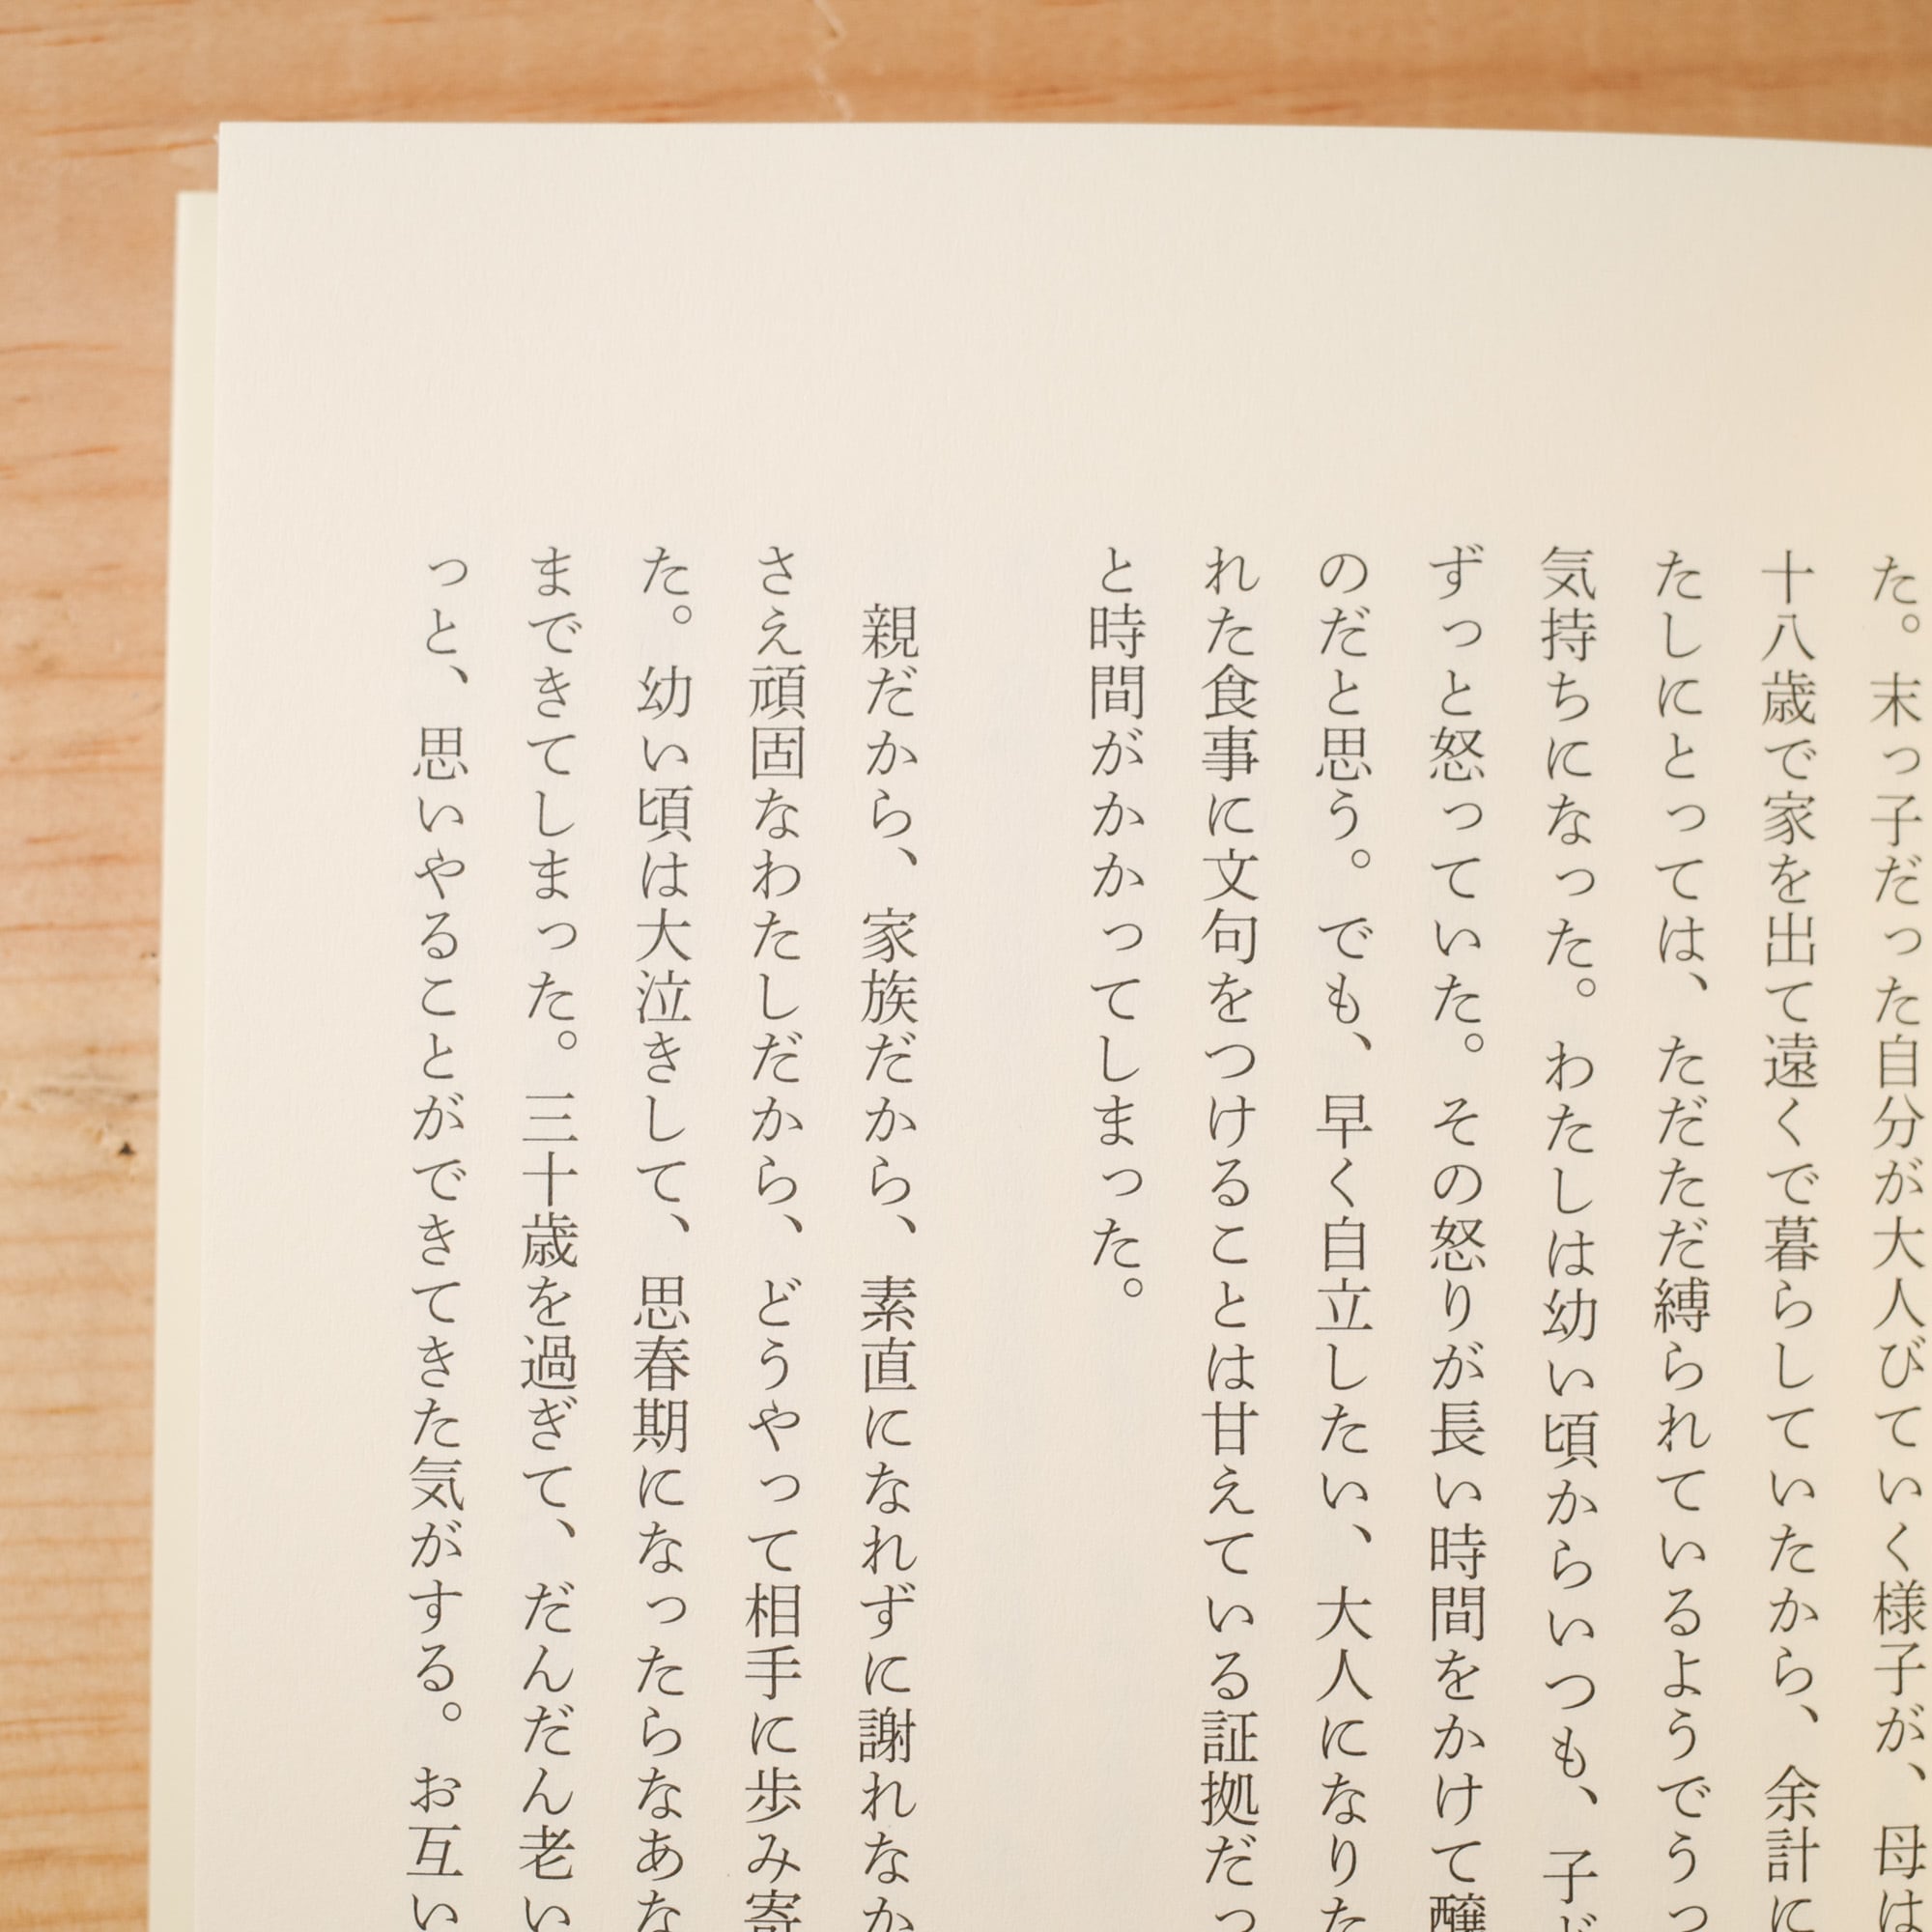 た。末っ子だった自分が大人びていく様子が、母は
十八歳で家を出て遠くで暮らしていたから、余計に
たしにとっては、ただただ縛られているようでうっ
気持ちになった。わたしは幼い頃からいつも、子ど
ずっと怒っていた。その怒りが長い時間をかけて醸
のだと思う。でも、早く自立したい、大人になりた
れた食事に文句をつけることは甘えている証拠だっ
と時間がかかってしまった。
親だから、家族だから、素直になれずに謝れなか
さえ頑固なわたしだから、どうやって相手に歩み寄
た。幼い頃は大泣きして、思春期になったらなあな
まできてしまった。三十歳を過ぎて、だんだん老い
っと、思いやることができてきた気がする。お互い